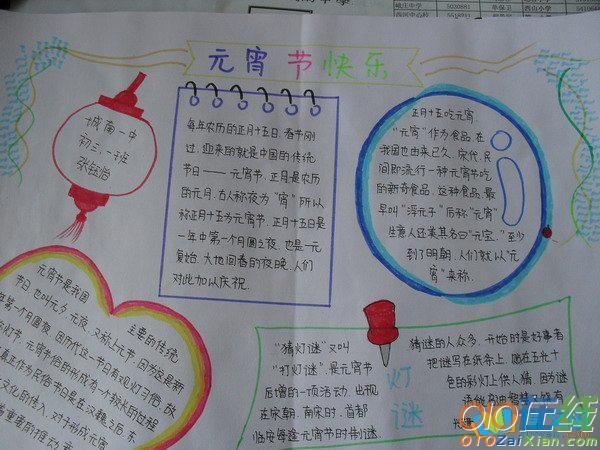 元宵节快乐
城南一中
初三.一班
每年农历的正月十五日.春节刚
过.迎来的就是中国的传统
节日——元宵节.正月是农历
的元月.古人称夜为“宵”所以
称正月十五为元宵节.正月十五日是
一年中第一个月圆之夜.也是一元
复始.大地回春的夜晚.人们
对此加以庆祝.
正月十五吃元宵
“元宵”作为食品.在
我国也由来已久.宋代.民
间即流行一种元宵节吃
的新奇食品.这种食品.最
早叫“浮元子”后称“元宵”
生意人还美其名曰“元宝.”至少
到了明朝.人们就以“元
宵”来称.
元宵节是我国
主要的传统
节日.也叫元夕.元夜.又称上元节.因为这是新
年第一个月圆夜.因历代这一节日有观灯习俗.故
灯节.元宵节俗的形成有一个较长的过程
真正作为民俗节日是在汉魏之后.东
文化的传入.对于形成元宵
有重要的推动意
“猜灯谜”又叫
“打灯谜”.是元宵节
后增的一项活动.出现
在宋朝.南宋时.首都
临安每逢元宵节时制谜.
灯
谜
猜谜的人众多.开始时是好事者
把谜写在纸条上.贴在五光十
色的彩灯上供人猜.因为谜
OtoZaiXian.com